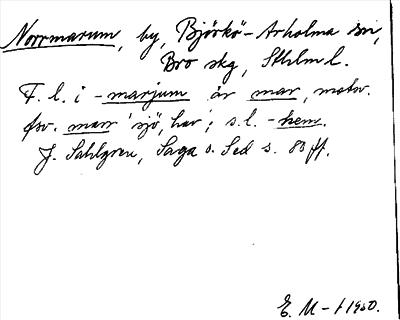 Norrmarum, by, Björkö-Arholma sn,
Bro skg, Sthlm l.
F. l. i -marjum är mar, motsv.
fsv. marr 'sjö, hav'; s. l. -hem.
J. Sahlgren, Saga o. Sed s. 83 ff.
E. M-t 1950.